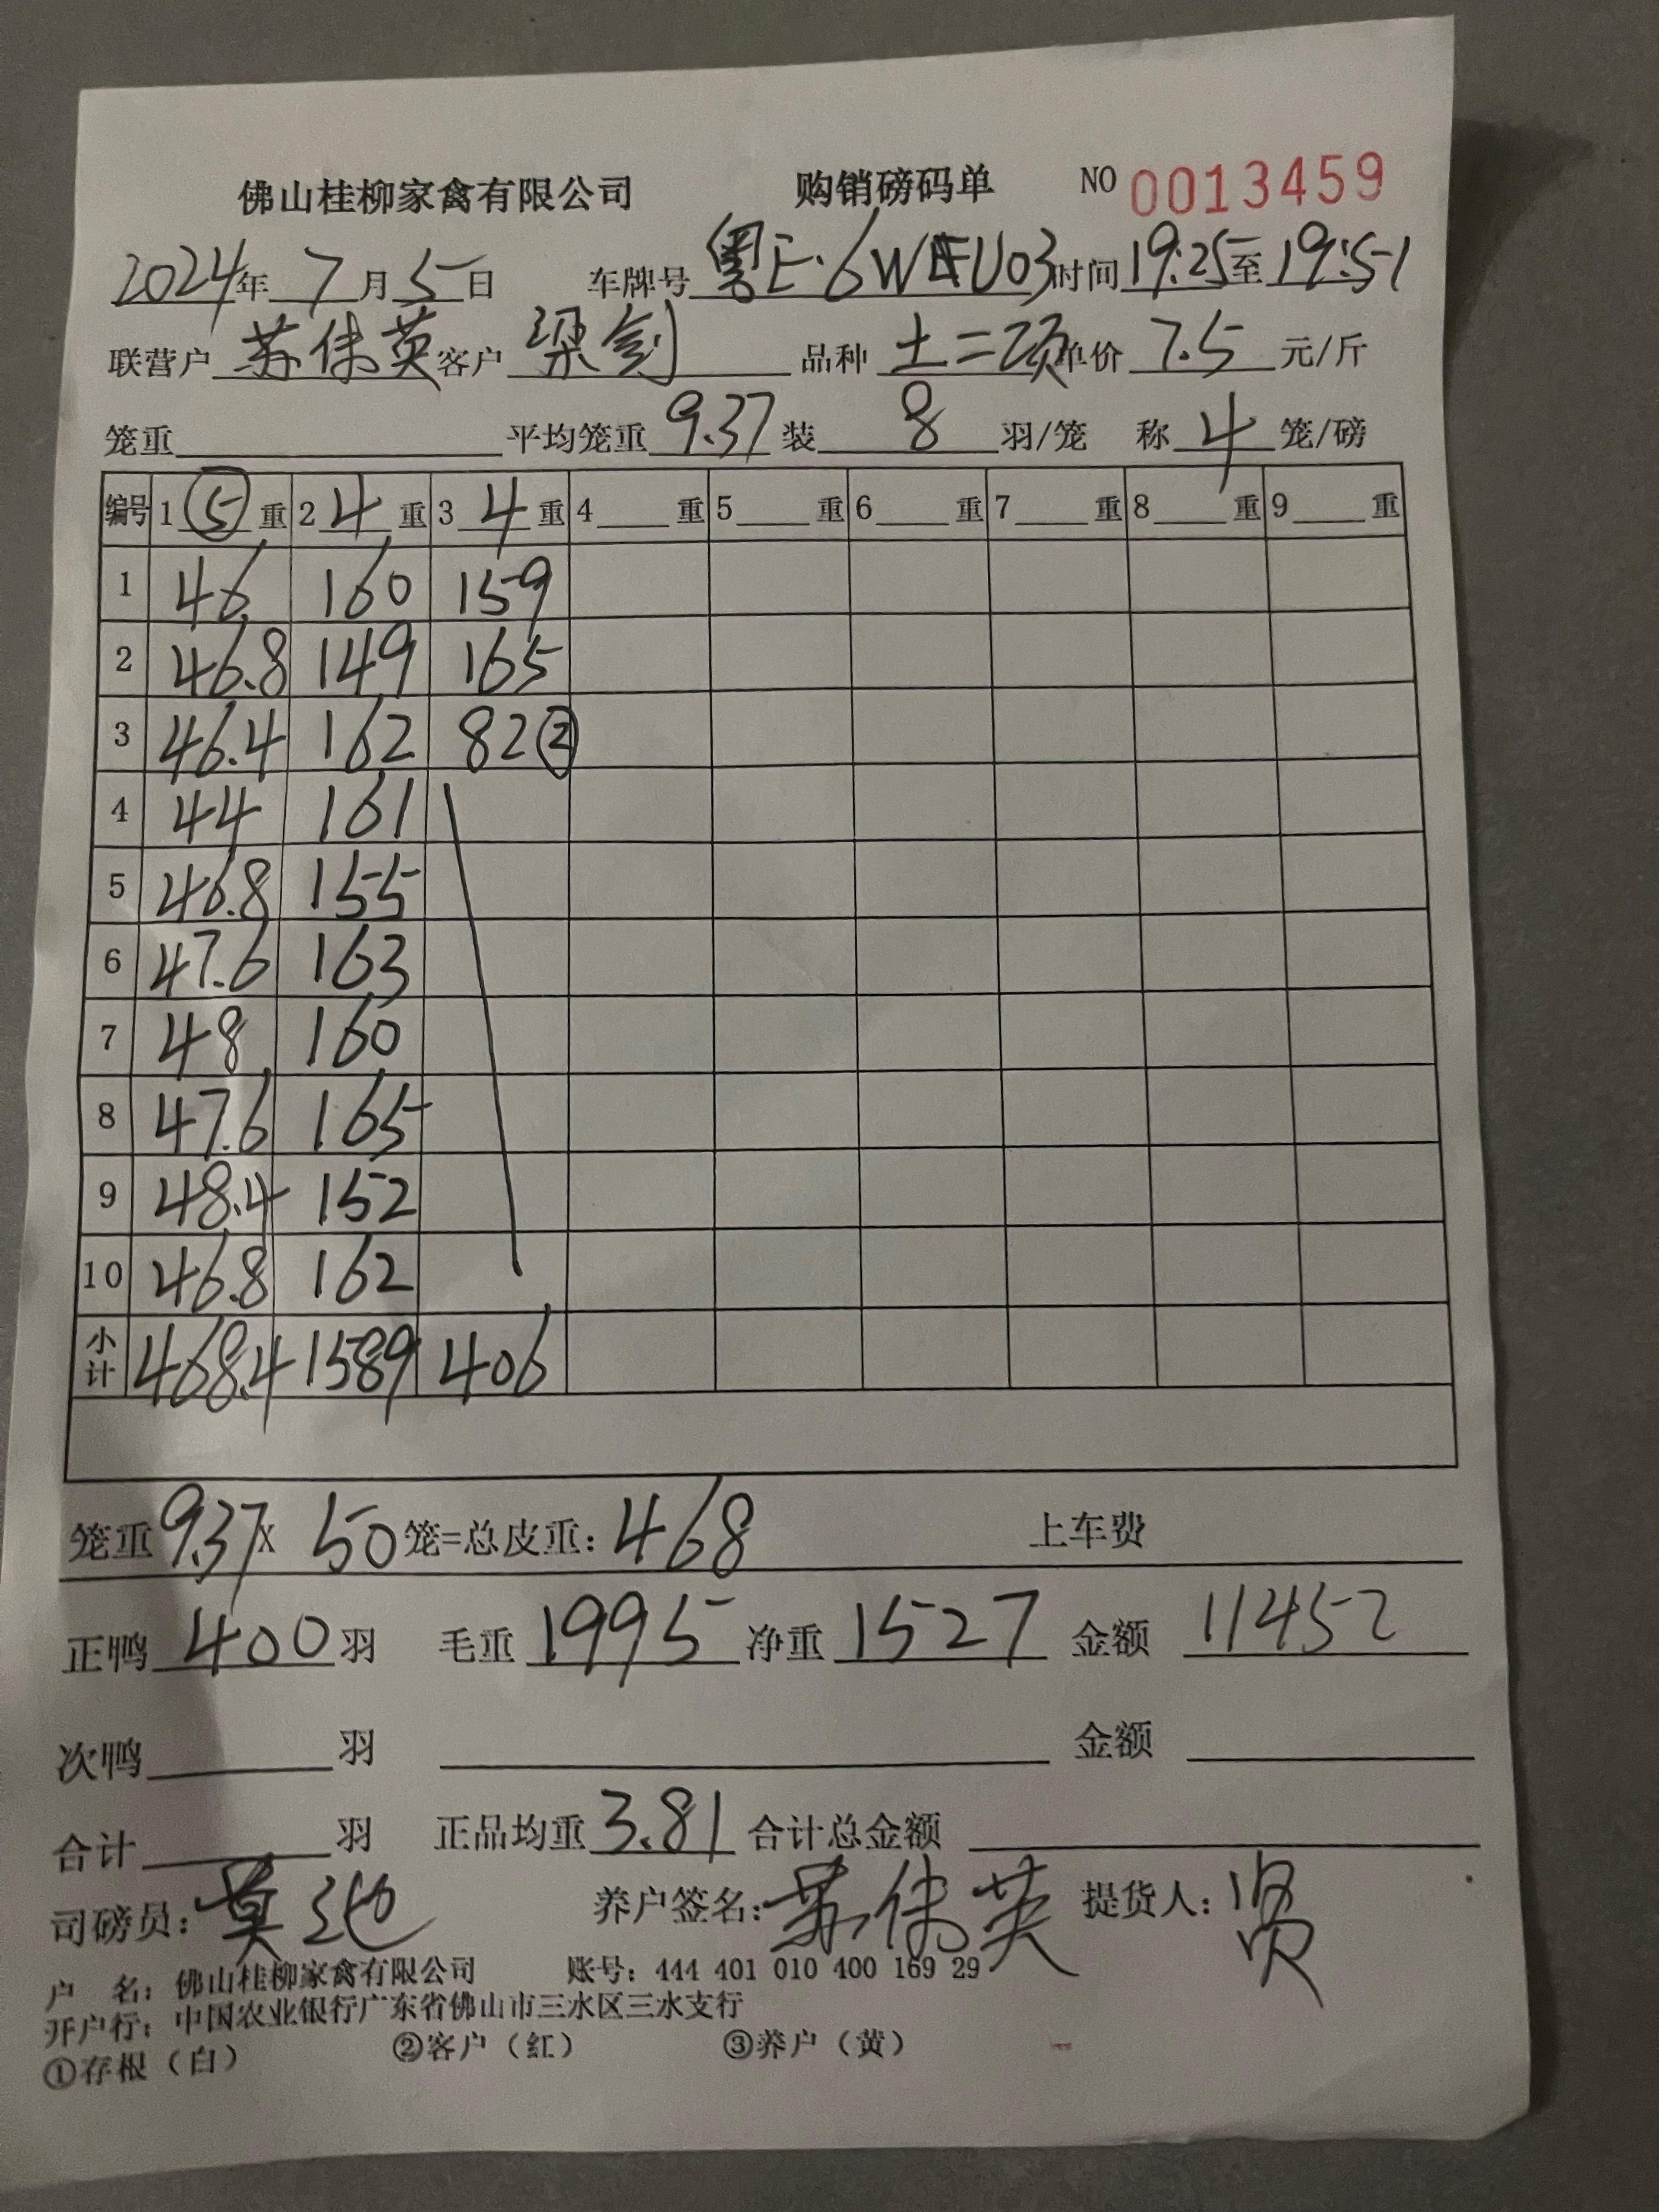 佛山桂柳家禽有限公司 购销磅码单 NO 0013459
2024年 7月 5日 车牌号 粤E·6W 时间 19:25至 19:51
联营户 苏伟英 客户 梁剑 品种 土二项 单价 7.5 元/斤
笼重 平均笼重 9.37 装 8 羽/笼 称 4 笼/磅
编号 1 ⑤ 重 2 4 重 3 4 重 4 重 5 重 6 重 7 重 8 重 9 重
1 46 160 159
2 46.8 149 165
3 46.4 162 82②
4 44 161
5 46.8 155
6 47.6 163
7 48 160
8 47.6 165
9 48.4 152
10 46.8 162
小计 468.4 1589 406
笼重 9.37 X 50 笼=总皮重: 468 上车费
正鸭 400 羽 毛重 1995 净重 1527 金额 11452
次鸭 羽 金额
合计 羽 正品均重 3.81 合计总金额
司磅员: 莫 养户签名: 苏伟英 提货人: 贤
户 名: 佛山桂柳家禽有限公司 账号: 444 401 010 400 169 29
开户行: 中国农业银行广东省佛山市三水区三水支行
①存根(白) ②客户(红) ③养户(黄)